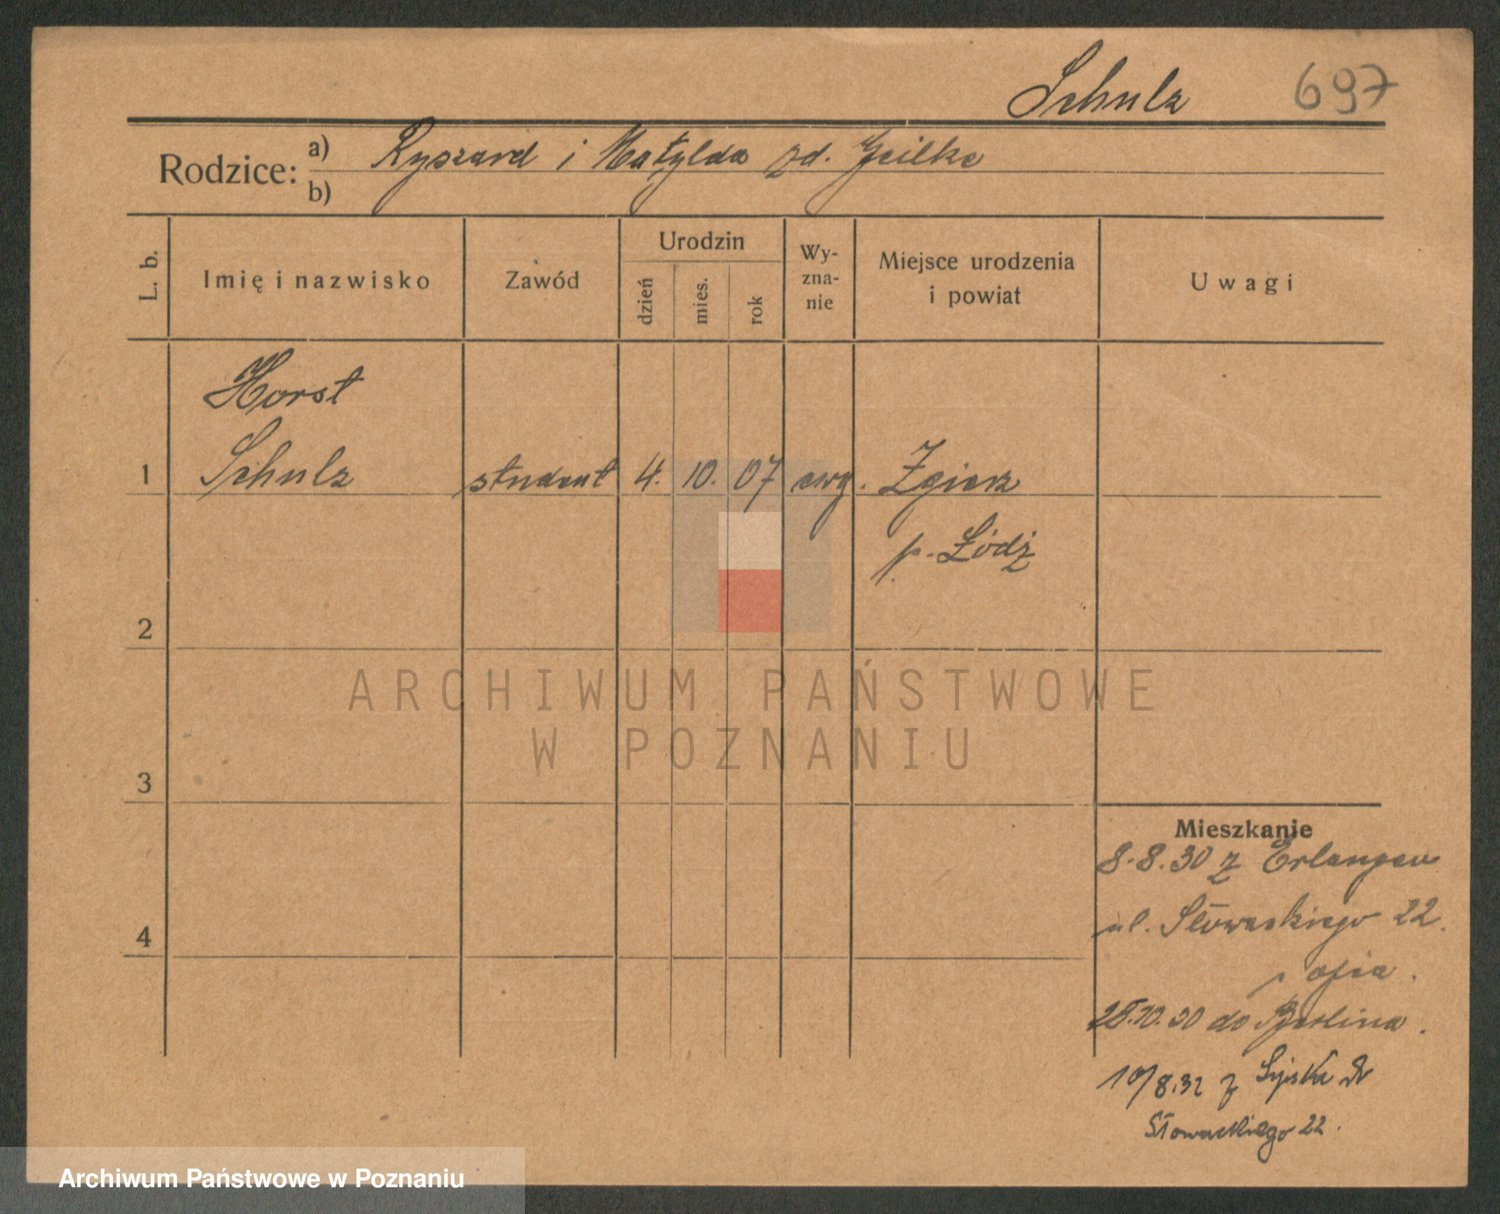 Schulz 697
Rodzice: a) Ryszard i Matylda zd. Geilke
b)
L. b. Imię i nazwisko Zawód Urodzin dzień mies. rok Wy-zna-nie Miejsce urodzenia i powiat Uwagi
Horst
1 Schulz student 4. 10. 07 ewg. Zgierz
p. Łódź
2
ARCHIWUM PAŃSTWOWE
W POZNANIU
3
Mieszkanie
8.8.30 z Erlangen
ul. Słowackiego 22.
4
10.30 do Berlina.
10/8.32 z Lipska
Słowackiego 22.
Archiwum Państwowe w Poznaniu